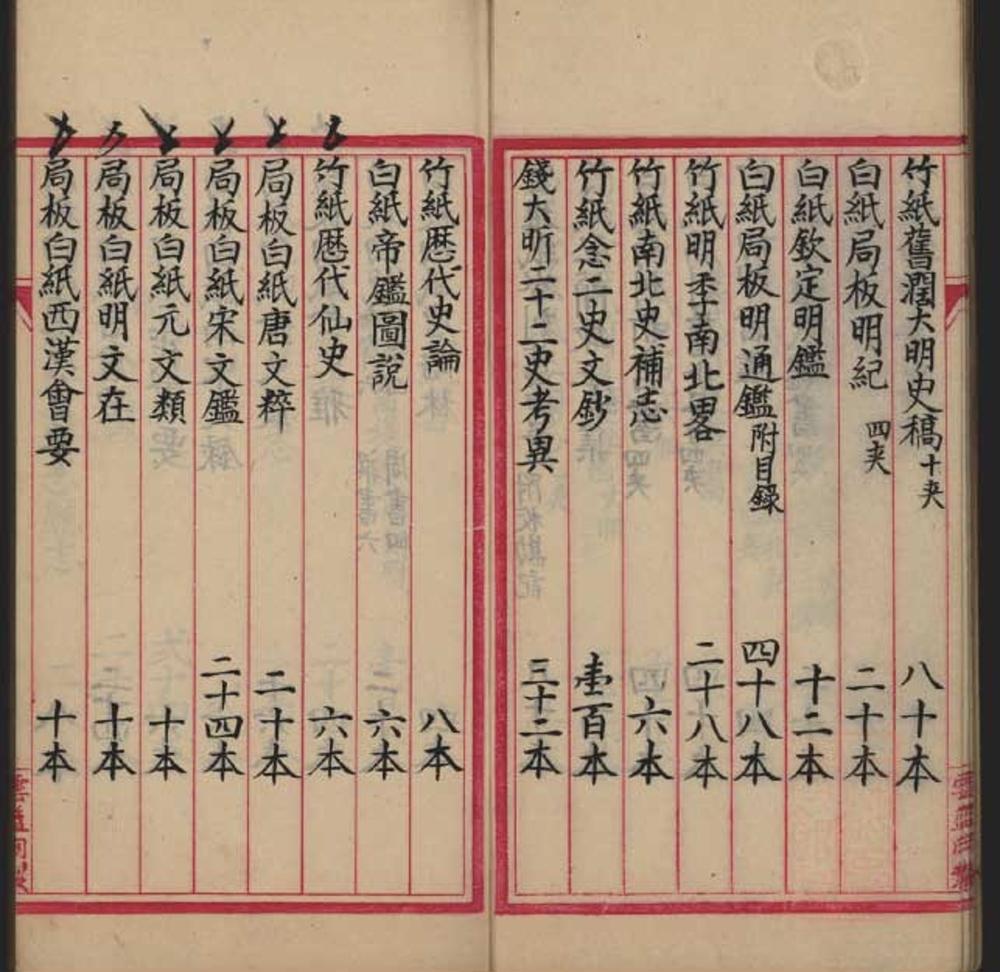 竹紙舊濶大明史稿 十夾 八十本
白紙局板明紀 四夾 二十本
白紙欽定明鑑 十二本
白紙局板明通鑑 附目録 四十八本
竹紙明季南北畧 二十八本
竹紙南北史補志 六本
竹紙念二史文鈔 壹百本
錢大昕二十二史考異 三十二本
竹紙歴代史論 八本
白紙帝鑑圖説 六本
竹紙歴代仙史 六本
局板白紙唐文粹 二十本
局板白紙宋文鑑 二十四本
局板白紙元文類 十本
局板白紙明文在 十本
局板白紙西漢會要 十本